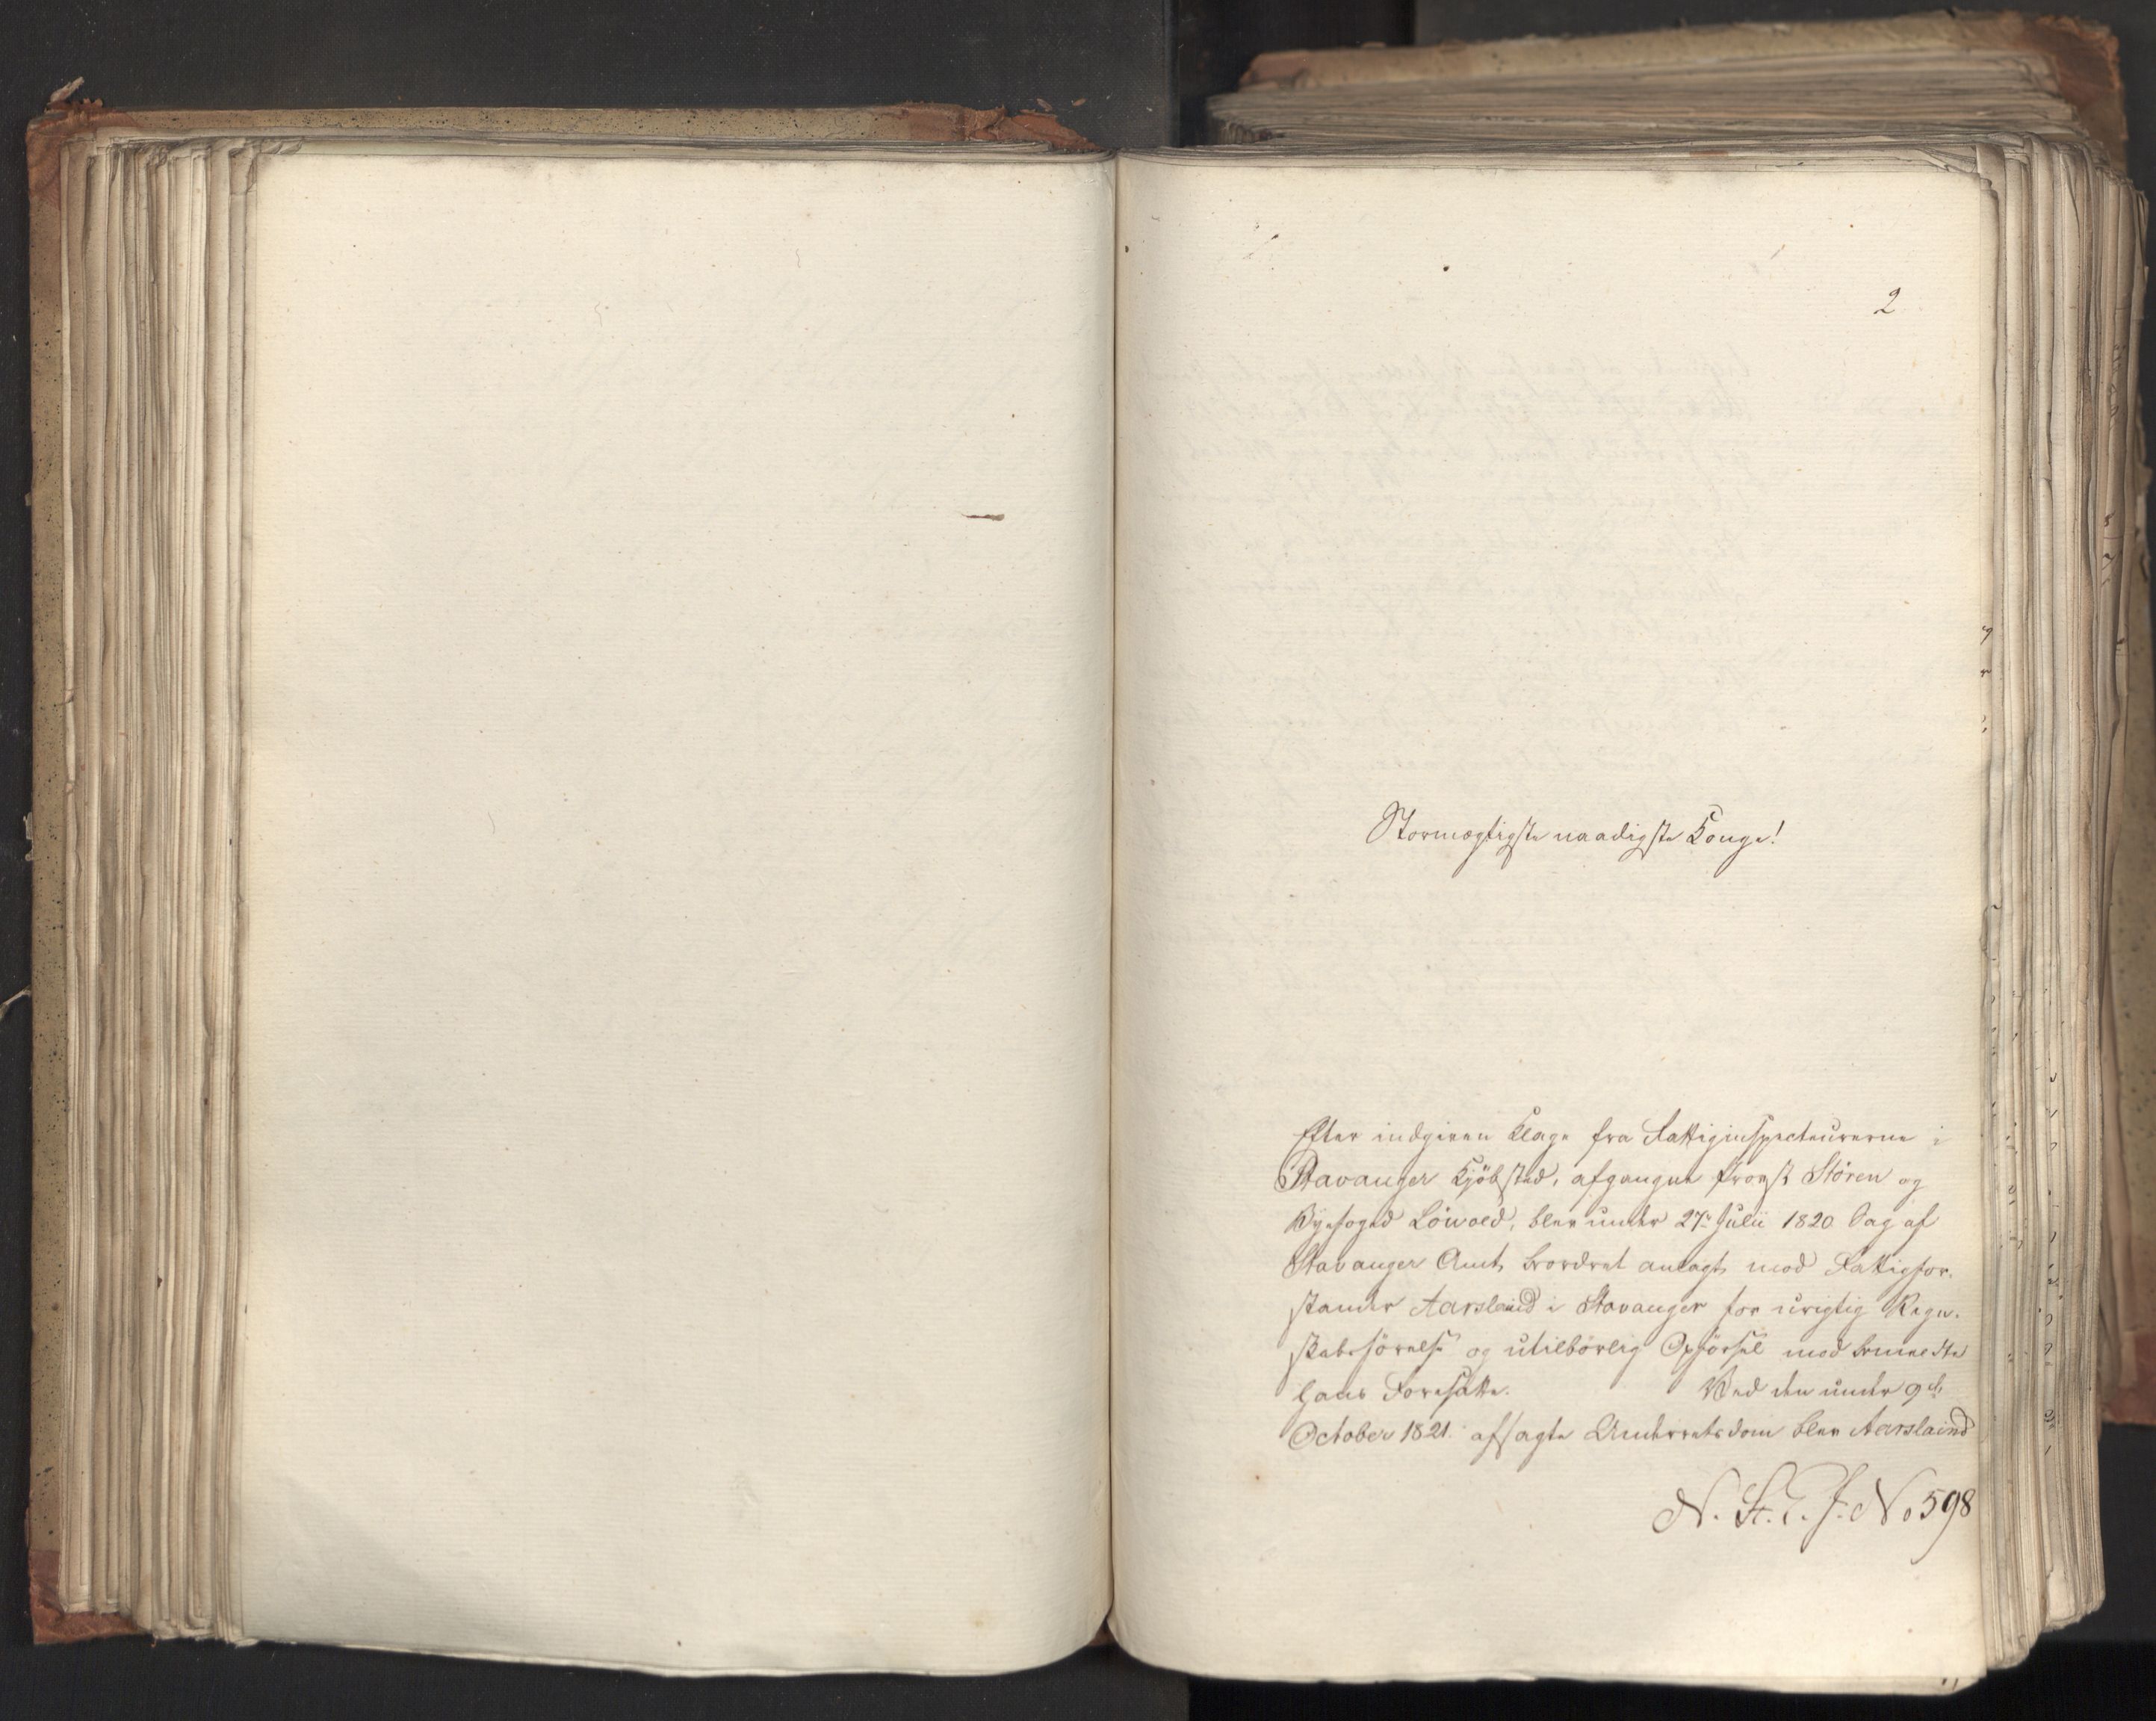 2
Stormægtigste naadigste Konge!
Efter indgiven Klage fra Fattiginspecteurerne i
Stavanger Kjöbsted, afgangne Provst Stören og
Byefoged Löwold, blev under 27de Julii 1820 Sag af
Stavanger Amt beordret anlagt mod Fattigfor-
stander Aarsland i Stavanger for urigtig Regn-
skabsförelse og utilbörlig Opförsel mod bemeldte
hans Foresatte. Ved den under 9de
October 1821 afsagte Underretsdom blev Aarsland
N. St. R. J. No 598